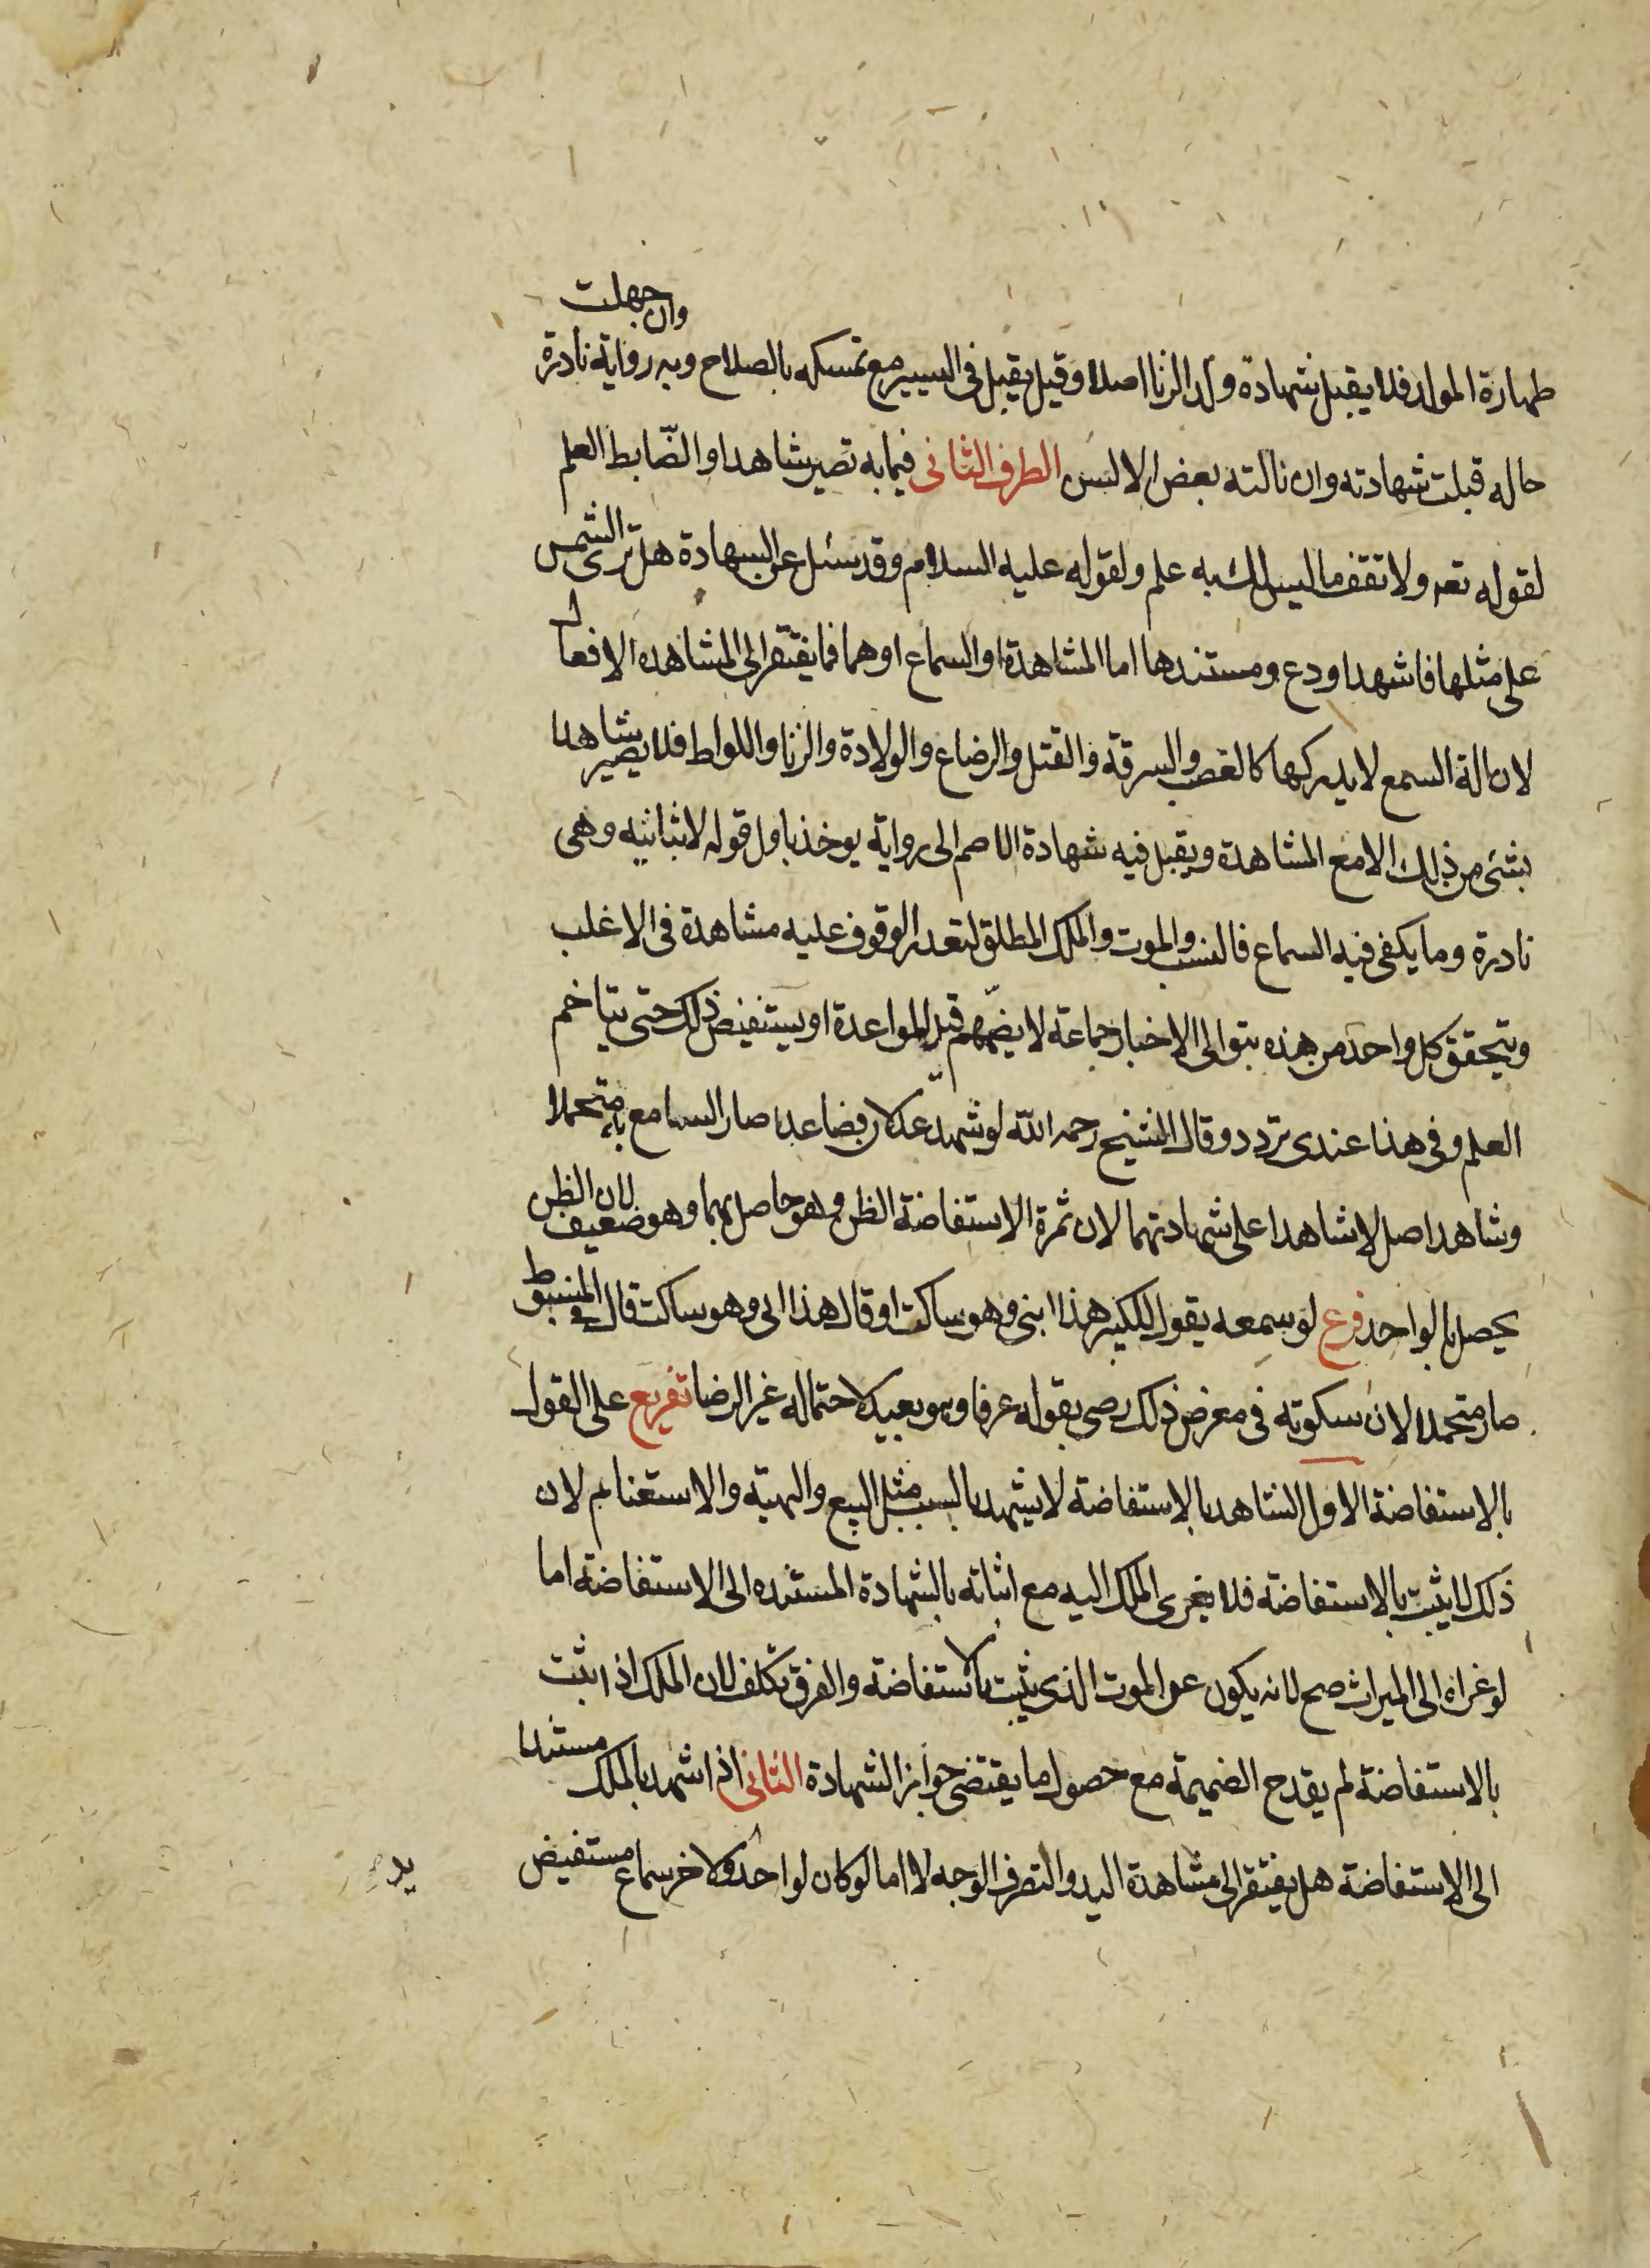 طهارة المولد فلا يقبل شهادة ولد الزنا اصلا وقيل يقبل فى اليسير مع تمسكه بالصلاح وبه رواية نادرة وان جهلت
حاله قبلت شهادته وان نالته بعض الالسن الطرف الثانى فيما به تصير شاهدا والضابط العلم
لقوله تعه ولا تقف ما ليس لك به علم ولقوله عليه السلام وقد سئل عن الشهادة هل ترى الشمس
على مثلها فاشهد او دع ومستندها اما المشاهدة او السماع او هما فما يفتقر الى المشاهده الافعال
لان الة السمع لا يدركها كالغصب والسرقة والقتل والرضاع والولادة والزنا واللواط فلا يصير شاهدا
بشئ من ذلك الا مع المشاهدة ويقبل فيه شهادة الاصم الى رواية يوخذ باول قوله لا بثانيه وهى
نادرة وما يكفى فيه السماع فالنسب والموت والملك المطلق لتعذر الوقوف عليه مشاهدة فى الاغلب
ويتحقق كل واحد من هذه بتوالى الاخبار جماعة لا يضمهم قيل المواعدة او يستفيض ذلك حتى يتاخم
العلم وفى هذا عندى تردد وقال الشيخ رحمه الله لو شهد عدلان فصاعدا صار السامع متحملا
وشاهد اصل لا شاهدا على شهادتهما لان ثمرة الاستفاضة الظن وهو حاصل بهما وهو ضعيف لان الظن
يحصل بالواحد فرع لو سمعه يقول للكبير هذا ابنى وهو ساكت او قال هذا ابى وهو ساكت قال فى المبسوط
صار متحملا لان سكوته فى معرض ذلك رضى بقوله عرفا وهو بعيد لاحتماله غير الرضا تفريع على القول
بالاستفاضة الاول الشاهد بالاستفاضة لا يشهد بالسبب مثل البيع والهبة والاستغنام لان
ذلك لا يثبت بالاستفاضة فلا يغرى الملك اليه مع اثباته بالشهادة المستنده الى الاستفاضة اما
لو غراه الى الميراث صح لانه يكون عن الموت الذى يثبت بالاستفاضة والفرق تكلف لان الملك اذا ثبت
بالاستفاضة لم يقدح الضميمة مع حصول ما يقتضى جواز الشهادة الثانى اذا شهد بالملك مستندا
الى الاستفاضة هل يفتقر الى مشاهدة اليد والتصرف الوجه لا اما لو كان لواحد ولاخر سماع مستفيض
يد